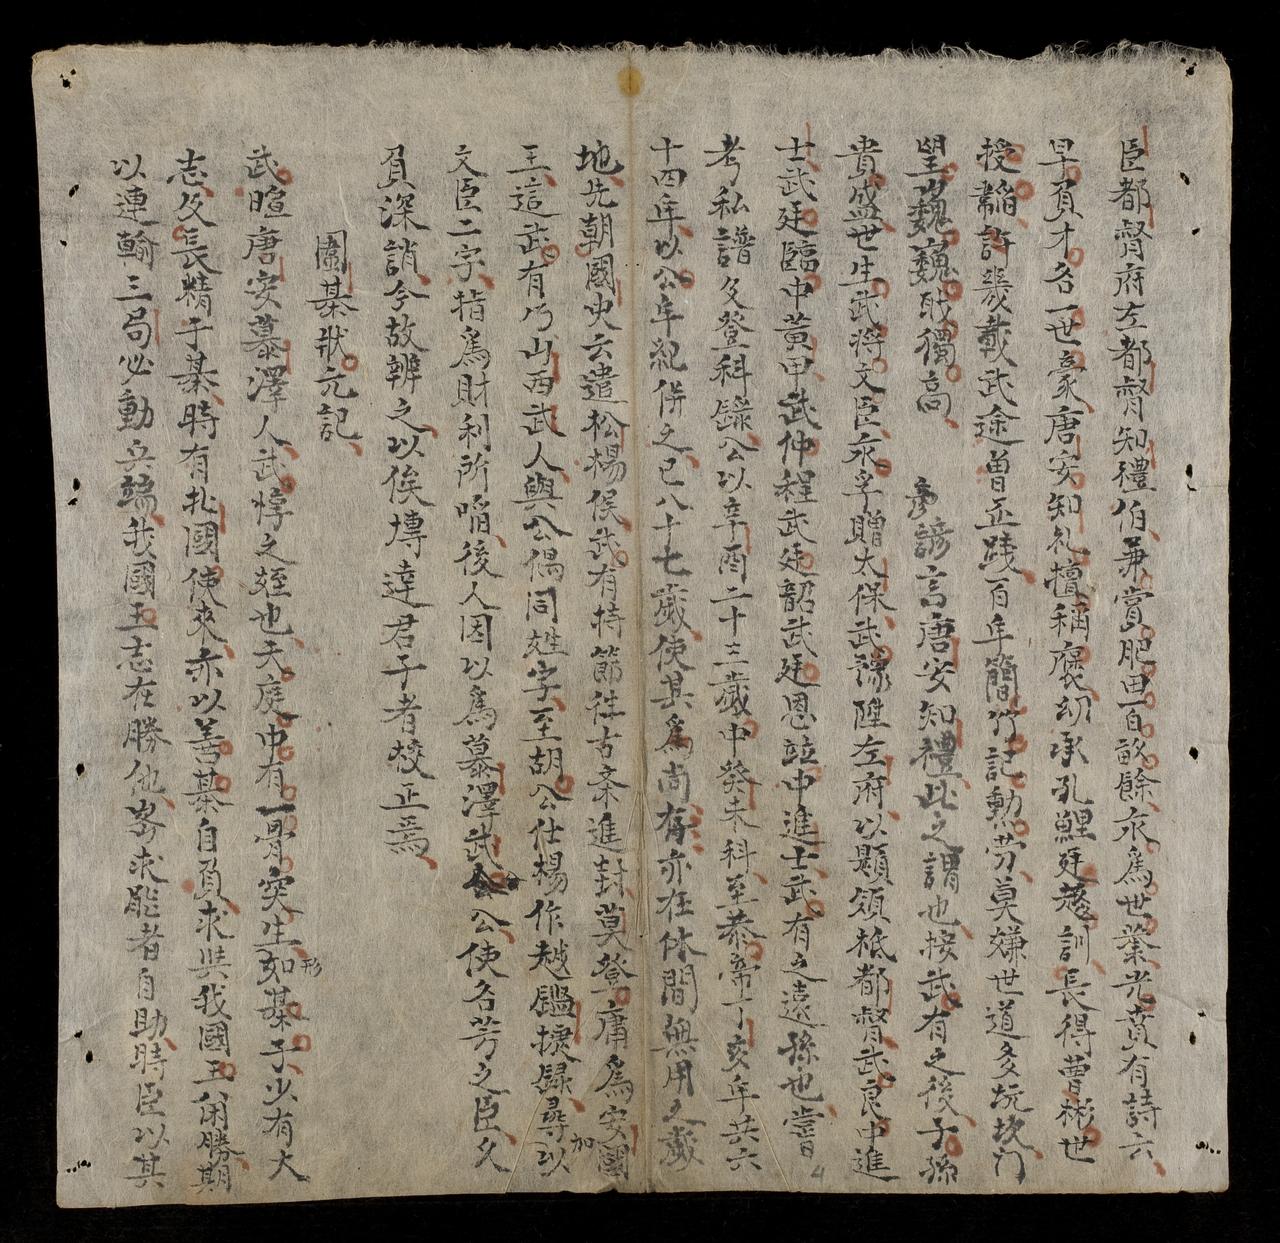 臣都督府左都督知禮伯兼賞肥田一百畝餘永爲世業光賁有詩云
早負才名一世豪唐安知礼擅稱褒幼承孔鯉廷趍訓長得曹彬世
授韜許幾載武途曾歪踐百年簡竹記勲劳莫嫌世道多坑坎门
望巍巍戝獨高 彥諺言唐安知禮此之謂也按武有之後子孫
貴盛世生武將文臣永孚贈太保武禄陞左府以顯領柢都督武良中進
士武廷臨中黄甲武仲程武廷韶武廷恩竝中進士武有之遠孫也嘗
考私譜及登科錄公以辛酉二十三歲中癸未科至恭帝丁亥年共六
十四年以公年紀併之已八十七歲使其爲尚存亦在休閒無用之歲
地先朝國史云遣松楊侯武有持節徃古齋進封莫登庸爲安國
王這武有乃山西武人與公偶同姓字至胡公仕楊作越鑑捷錄尋加以
文臣二字指爲財利所啗後人因以爲慕澤武公公使名芳之臣久
負深誚今故辨之以俟博達君子者校正焉
圍棊狀元記
武暄唐安慕澤人武惇之姪也天庭中有一骨突生如棊子形少有大
志及長精于棊時有北國使來亦以善棊自負求與我國王閗勝期
以連輸三局必動兵端我國王志在勝他旁求能者自助時臣以其